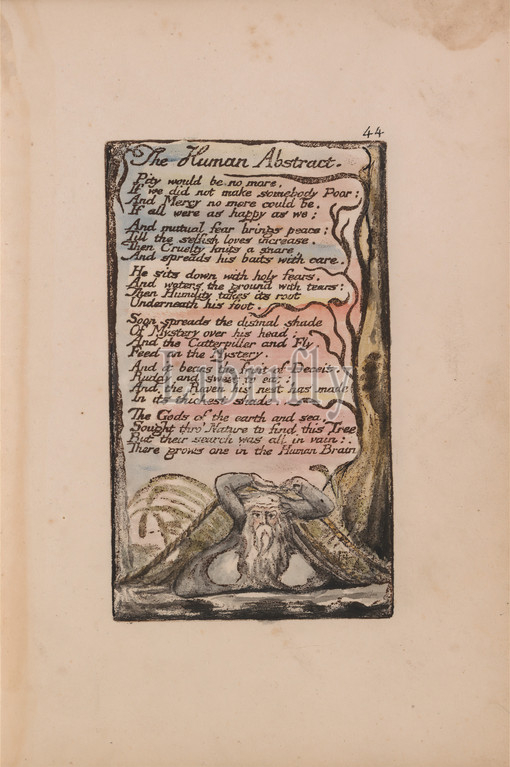 44
The Human Abstract.
Pity would be no more,
If we did not make somebody Poor:
And Mercy no more could be,
If all were as happy as we;
And mutual fear brings peace:
Till the selfish loves increase.
Then Cruelty knits a snare,
And spreads his baits with care.
He sits down with holy fears,
And waters the ground with tears:
Then Humility takes its root
Underneath his foot.
Soon spreads the dismal shade
Of Mystery over his head;
And the Catterpiller and Fly,
Feed on the Mystery.
And it bears the fruit of Deceit,
Ruddy and sweet to eat;
And the Raven his nest has made
In its thickest shade.
The Gods of the earth and sea,
Sought thro' Nature to find this Tree
But their search was all in vain:
There grows one in the Human Brain
Librifly